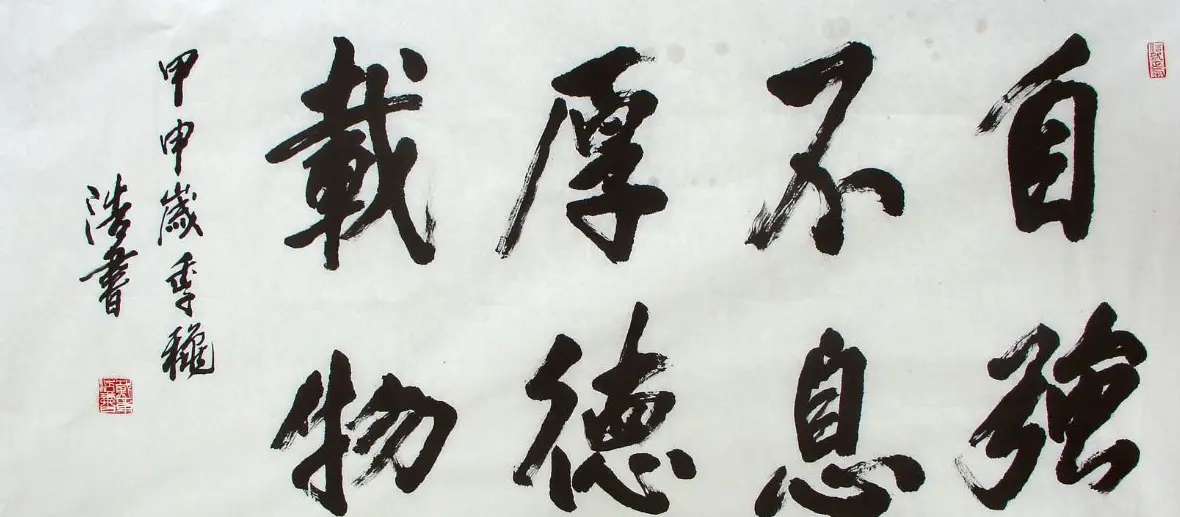 自強
不息
厚德
載物
甲申歲季穐
浩書